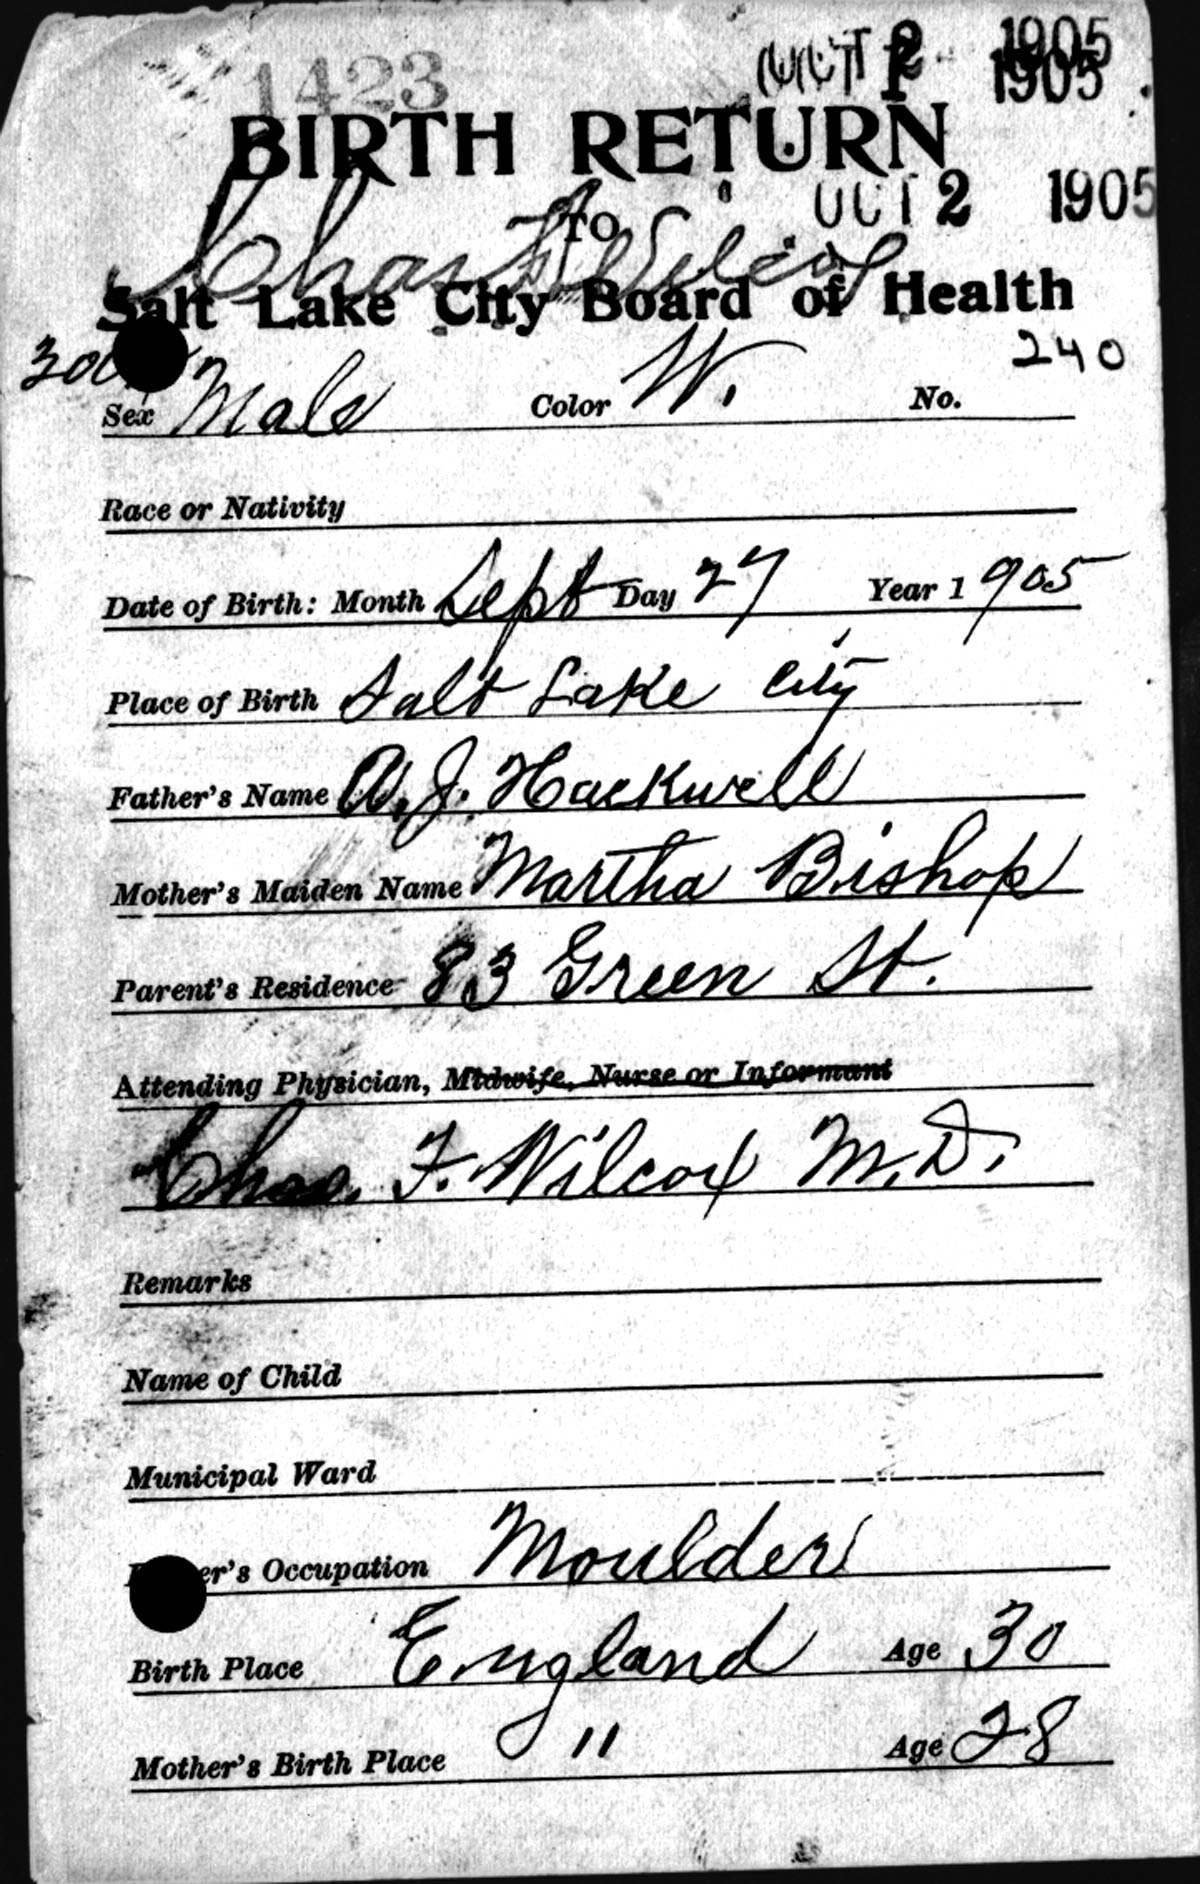 1423
OCT 2 1905
1905
BIRTH RETURN
TO OCT 2 1905
Chas F Wilcox
Salt Lake City Board of Health
240
Sex Male Color W. No.
Race or Nativity
Date of Birth: Month Sept Day 27 Year 1905
Place of Birth Salt Lake City
Father's Name A. J. Hackwell
Mother's Maiden Name Martha Bishop
Parent's Residence 83 Green St.
Attending Physician, Midwife, Nurse or Informant
Chas. F. Wilcox M.D.
Remarks
Name of Child
Municipal Ward
er's Occupation Moulder
Birth Place England Age 30
Mother's Birth Place " Age 28